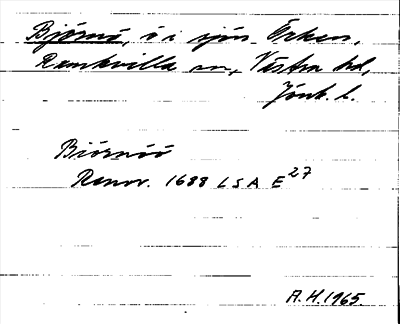 Björnö, ö i sjön Örken,
Ramkvilla sn, Västra hd,
Jönk. l.
Biörnöö
Renov. 1688 LSA E27
A.H. 1965.